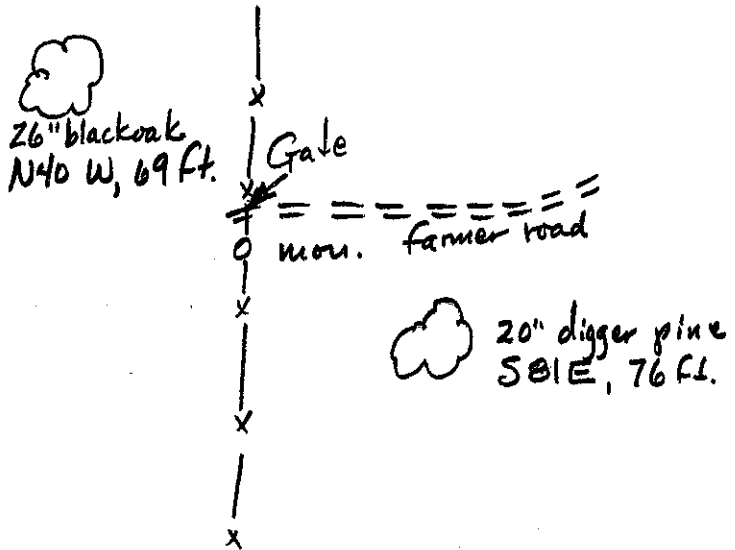 26" blackoak
N40 W, 69 ft.
Gate
mon. farmer road
20" digger pine
S81E, 76 ft.